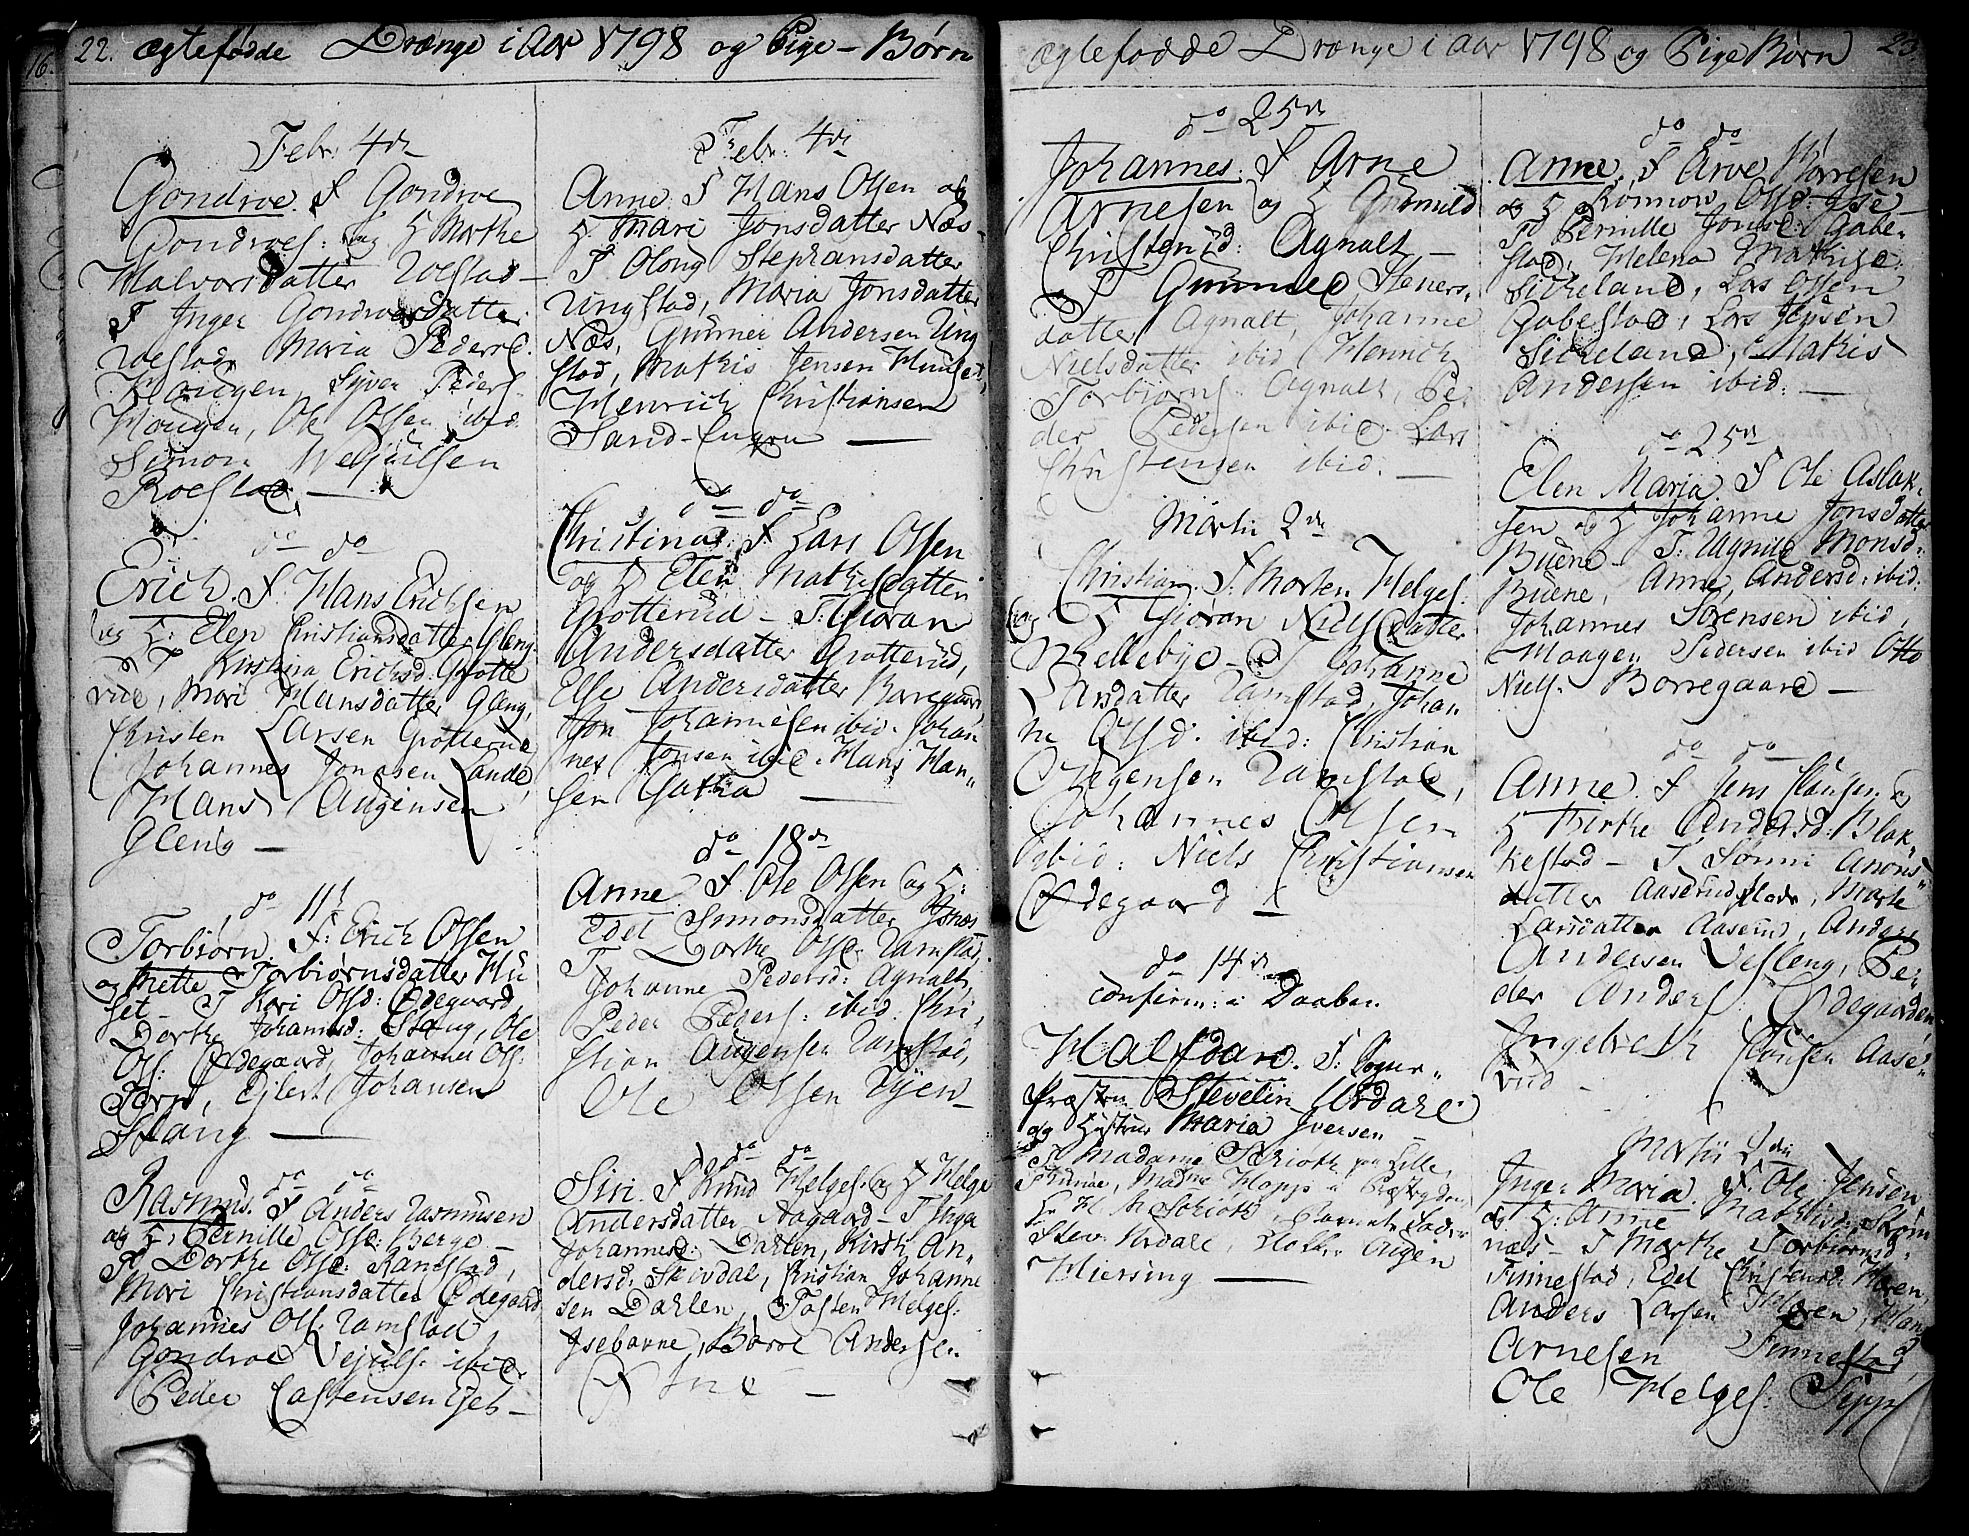 22. ægtefødde Drænge i Aar 1798 og Pige-Børn
Febr: 4de
Gondroe. F Gondroe
Gondroes: og H Marthe
Halvorsdatter Roestad
F Inger Gondroesdatter
Roestad, Maria Pedersd.
Hougen, Syver Peders.
Hougen, Ole Olsen ibid
Simon Wetjulsen
Roestad. —
do do
Erich. F. Hans Erichsen
og H: Elen Christiansdatter Gleng
F Kirstina Erichsd: Grotte
rud, Mari Hansdatter Gleng,
Christen Larsen Grotterud
Johannes Jonasen Lande,
Hans Augensen
Gleng —
do 11te
Torbiørn. F: Erich Olsen
og Mette Torbiørnsdatter Hu
set — F Kari Olsd: Ødegaard,
Dorthe Johannesd: Stang, Ole
Ols: Ødegaard, Johannes Ols:
Torp, Ejlert Johansen
Stang —
do do
Rasmus. F Anders Rasmusen
og H. Pernille Olsd: Berge —
F Dorthe Olsd: Ramstad,
Mari Christiansdatter Ødegaard,
Johannes Ols: Ramstad,
Gondroe Vejuls: ibid
Peder Castensen Geb —
Febr: 4de
Anne. F Hans Olsen og
H Mari Jonsdatter Næs.
F Oloug Stephansdatter
Ungstad, Maria Jonsdatter
Næs, Gunner Andersen Ung
stad, Mathis Jensen Huuset,
Henrich Christiansen
Sand-Engen —
do do
Christina. F Lars Olsen
og H Elen Mathisdatter
Grotterud — F: Giøran
Andersdatter Grotterud,
Else Andersdatter Borregaard,
Jon Johannesen ibid. Johan
nes Jonsen ibid. Hans Han„
sen —
do 18de
Anne. F. Ole Olsen og H:
Edel Simonsdatter Isnæs
F Dorthe Olsd: Ramstad,
Johanne Pedersd: Agnalt,
Peder Peders: ibid. Chri„
stian Augensen Ramstad,
Ole Olsen Ryen —
do do
Siri. F Knud Helges. og H Helge
Andersdatter Aagaard — F Inga
Johannesd: Dahlen, Kirsti An„
dersd: Skivdal, Christian Johanne
sen Dahlen, Tosten Helges:
Isebarne, Børre Anderse.
Tne —
ægtefødde Drænge i Aar 1798 og Pige Børn 23.
do 25de
Johannes. F Arne
Arnesen og H Gunnild
Christensd: Agnalt —
F Gunnild Steners.
datter Agnalt, Johanne
Nielsdatter ibid Henrich
Torbiørns Agnalt, Pe„
der Pedersen ibid. Lars
Christensen ibid. —
Martii 2de
Christian. F. Morten Helges.
og H Giøran Nielsdatter
Mellebye — F Johanne
Larsdatter Ramstad, Johan
ne Olsd: ibid: Christian
Jørgensen Ramstad,
Johannes Olsen
ibid: Niels Christiansen
Ødegaard
do 14de
confirm: i Daaben
Halfdan. F: Sogne„
Præsten Stevelin Urdahl
og Hustrue Maria Iversen —
F Madame Schiøth paa Lille„
Hr. H. M Schiøth,
Stev. Urdahl, Augen
Hiersing —
do do
Anne. F Arve Børresen
og H Rønnow Olsd: Gee
F Pernille Jonsd: Gabe„
stad, Helena Mathisd:
Sicheland, Lars Olsen
Gabestad, Lars Jensen
Sicheland, Mathis
Andersen ibid: —
do 25de
Elen Maria. F Ole Aslak„
sen og H Johanne Jonsdatter
Buene — F: Ragnild Monsd:
Buene, Anne Andersd: ibid.
Johannes Sørensen ibid,
Maagen Pedersen ibid Otto
Niels. Borregaard —
do do
Anne. F Jens Clausen og
H Berthe Andersd: Blak„
kestad — F Sønni Amons„
datter Aaserud, Marthe
Larsdatter Aaserud, Anders
Andersen Vesleng, Pe„
der Anders. Ødegaarden
Ingebreth Clausen Aase„
rud —
Martii 4de
Inger Maria. F. Ole Jensen
og H: Anne Mathisd: Skin
næs — F Marthe Torbiørnsd:
Finnestad, Edel Christensd: Haren,
Anders Larsen Haren, Hans
Arnesen Finnestad,
Ole Helges: